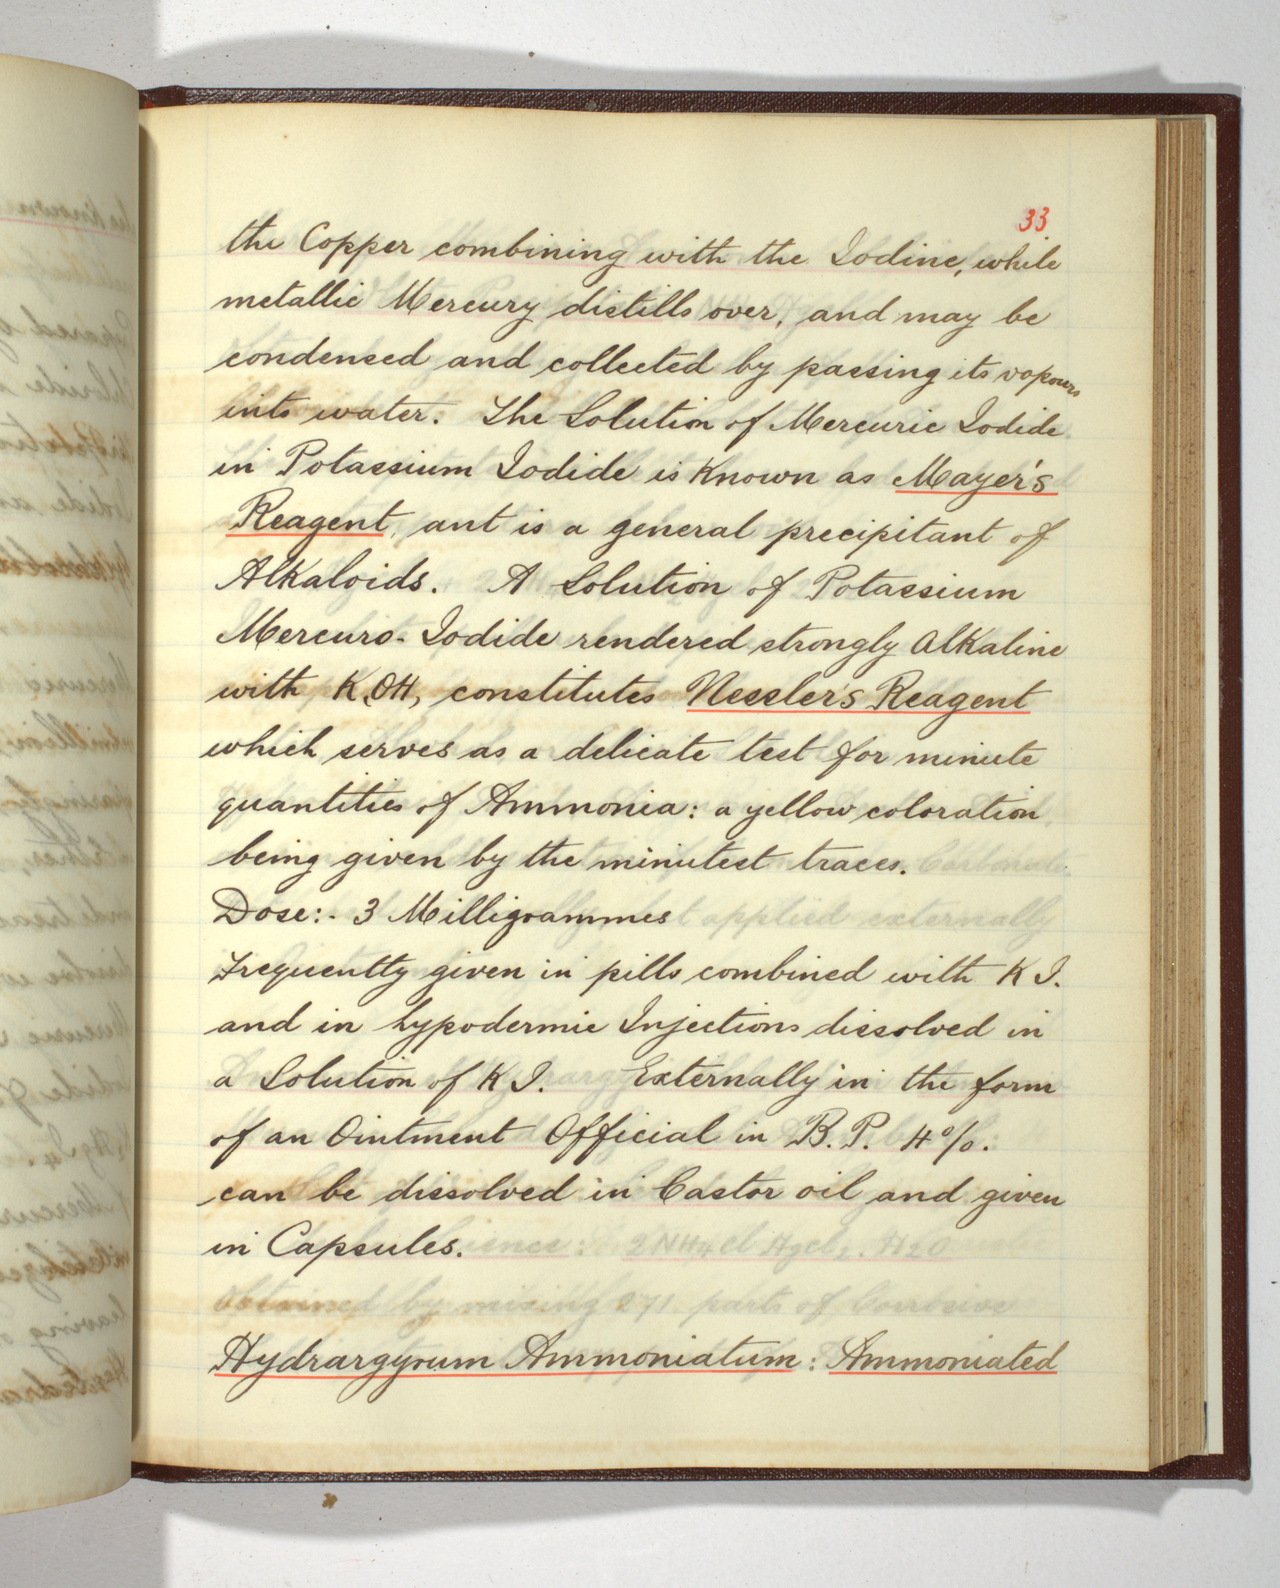 33
the Copper combining with the Iodine, while
metallic Mercury distills over, and may be
condensed and collected by passing its vapours
into water. The Solution of Mercuric Iodide
in Potassium Iodide is Known as Mayer's
Reagent, ant is a general precipitant of
Alkaloids. A Solution of Potassium
Mercuro-Iodide rendered strongly Alkaline
with K.OH, constitutes Nessler's Reagent
which serves as a delicate test for minute
quantities of Ammonia: a yellow coloration
being given by the minutest traces.
Dose:- 3 Milligrammes
Frequently given in pills combined with K I.
and in hypodermic Injections dissolved in
a Solution of K I. Externally in the form
of an Ointment Official in B. P. 4%.
can be dissolved in Castor oil and given
in Capsules.
Hydrargyrum Ammoniatum: Ammoniated